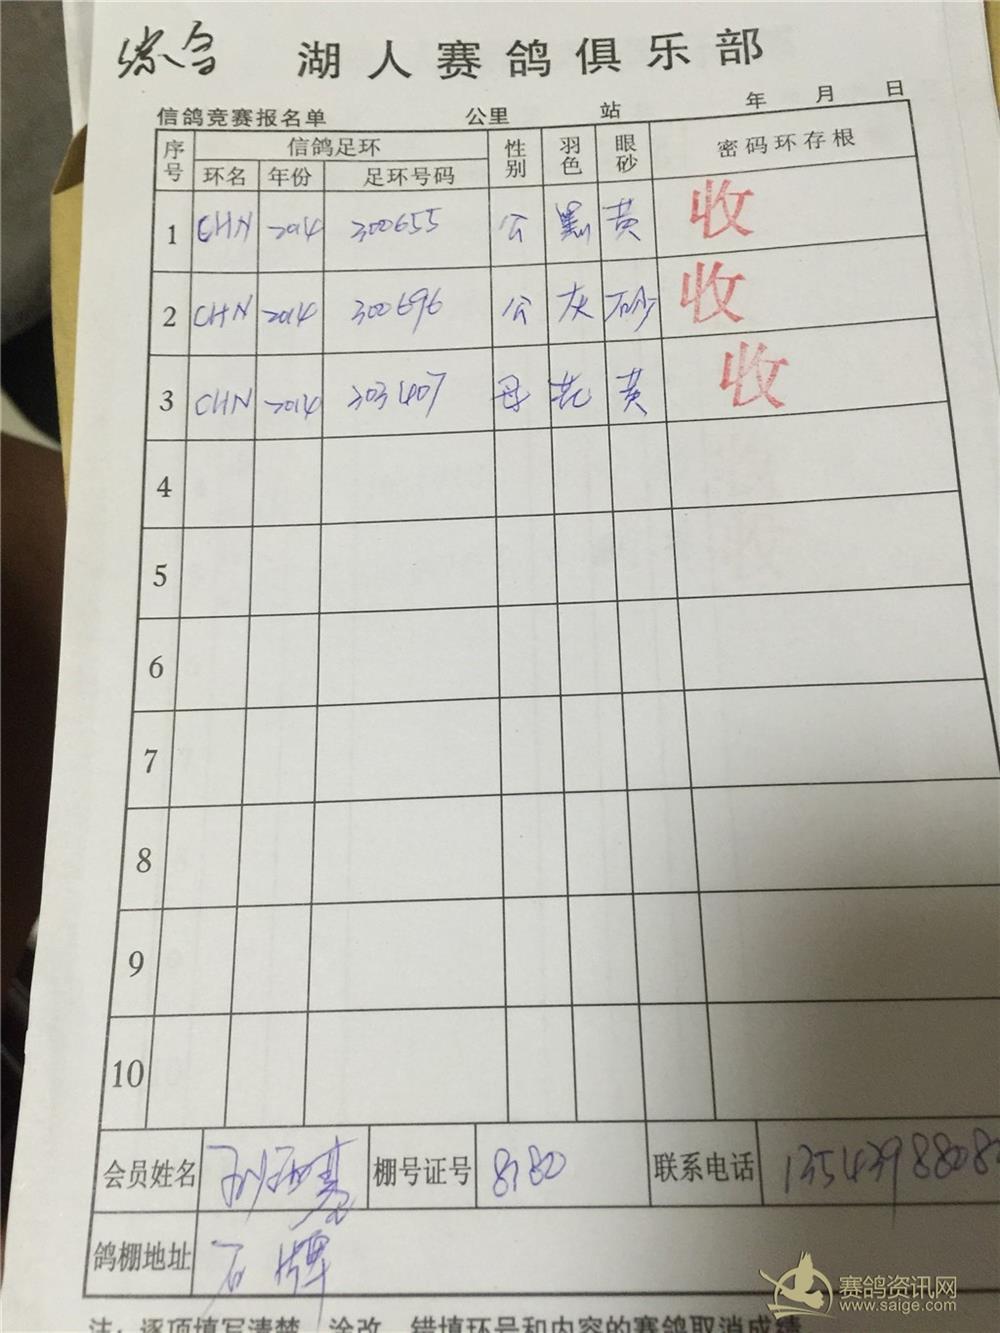 综合 湖人赛鸽俱乐部
信鸽竞赛报名单 公里 站 年 月 日
序号 信鸽足环 性别 羽色 眼砂 密码环存根
环名 年份 足环号码
1 CHN 2014 300655 公 黑 黄 收
2 CHN 2014 300696 公 灰 砂 收
3 CHN 2014 303407 母 花 黄 收
4
5
6
7
8
9
10
会员姓名 棚号证号 8180 联系电话
鸽棚地址 石牌
注：逐项填写清楚、涂改、错填环号和内容的赛鸽取消成绩
赛鸽资讯网
www.saige.com